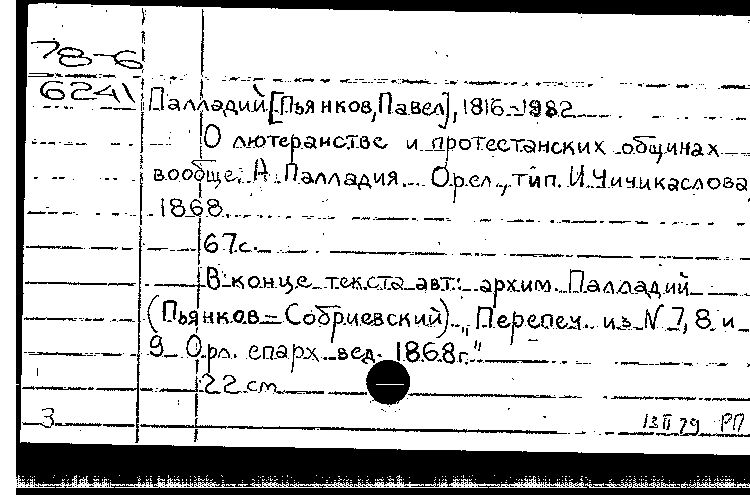 78-6
6241
Палладий [Пьянков, Павел], 1816-1982
О лютеранстве и протестанских общинах
вообще. А. Палладия. Орел, тип. И. Чичикаслова
1868.
67с.
В конце текста авт: архим. Палладий
(Пьянков-Собриевский). „Перепеч. из N 7, 8 и
9 Орл. епарх. вед. 1868г."
22 см
3
13 II 79 РП